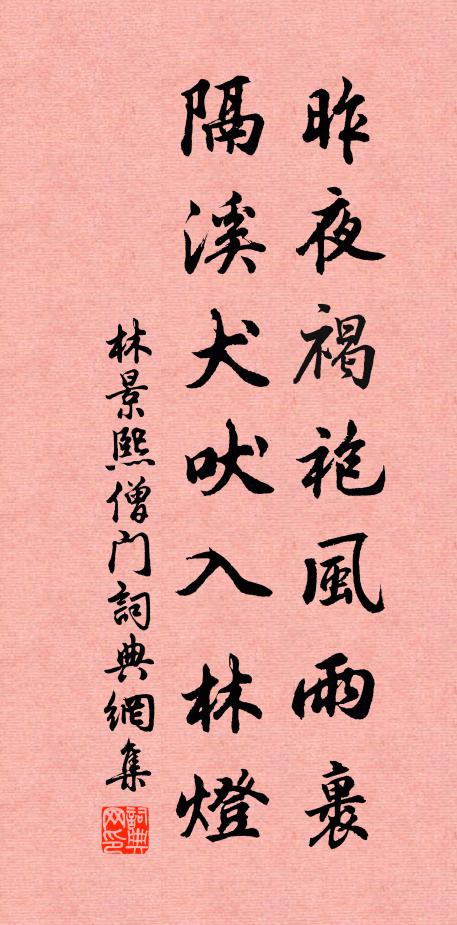 昨夜褐袍風雨裹
隔溪犬吠入林燈
林景熙僧门詞典網集
詞典网印